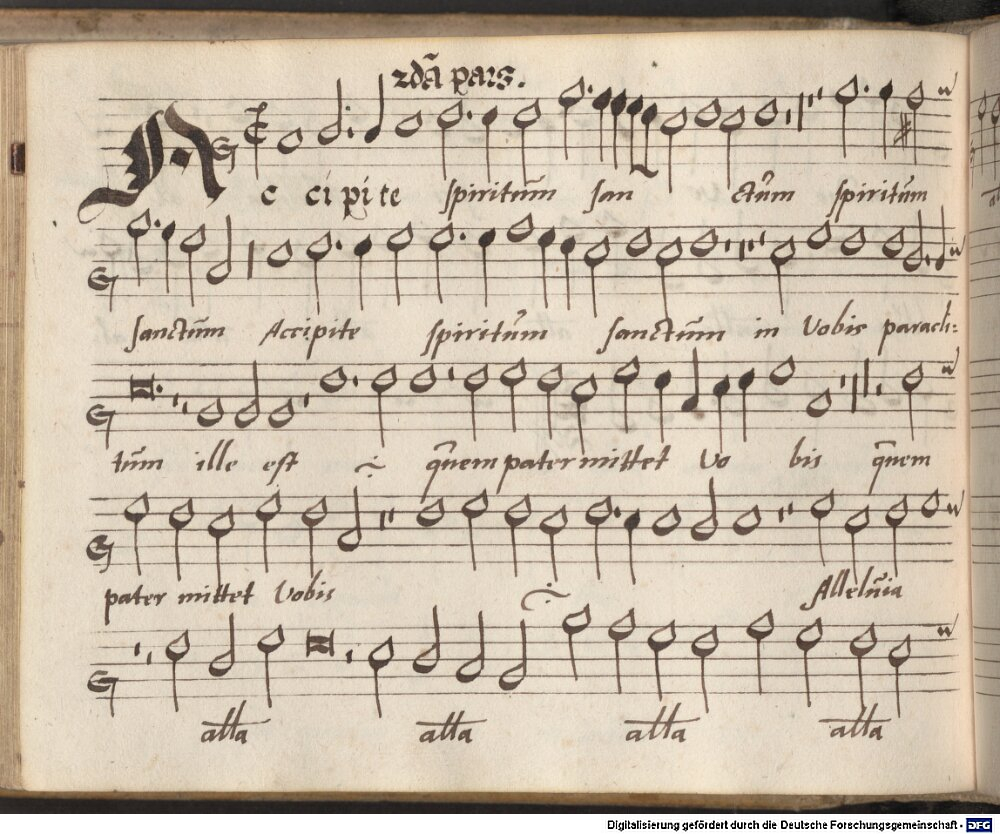 2dā pars.
Accipite spiritūm san ctūm spiritūm
sanctūm Accipite spiritūm sanctūm in Vobis paracli:
tūm ille est ∻ quem pater mittet Vo bis quem
pater mittet Vobis ∻ Allelūia
alla alla alla alla
Digitalisierung gefördert durch die Deutsche Forschungsgemeinschaft - DFG